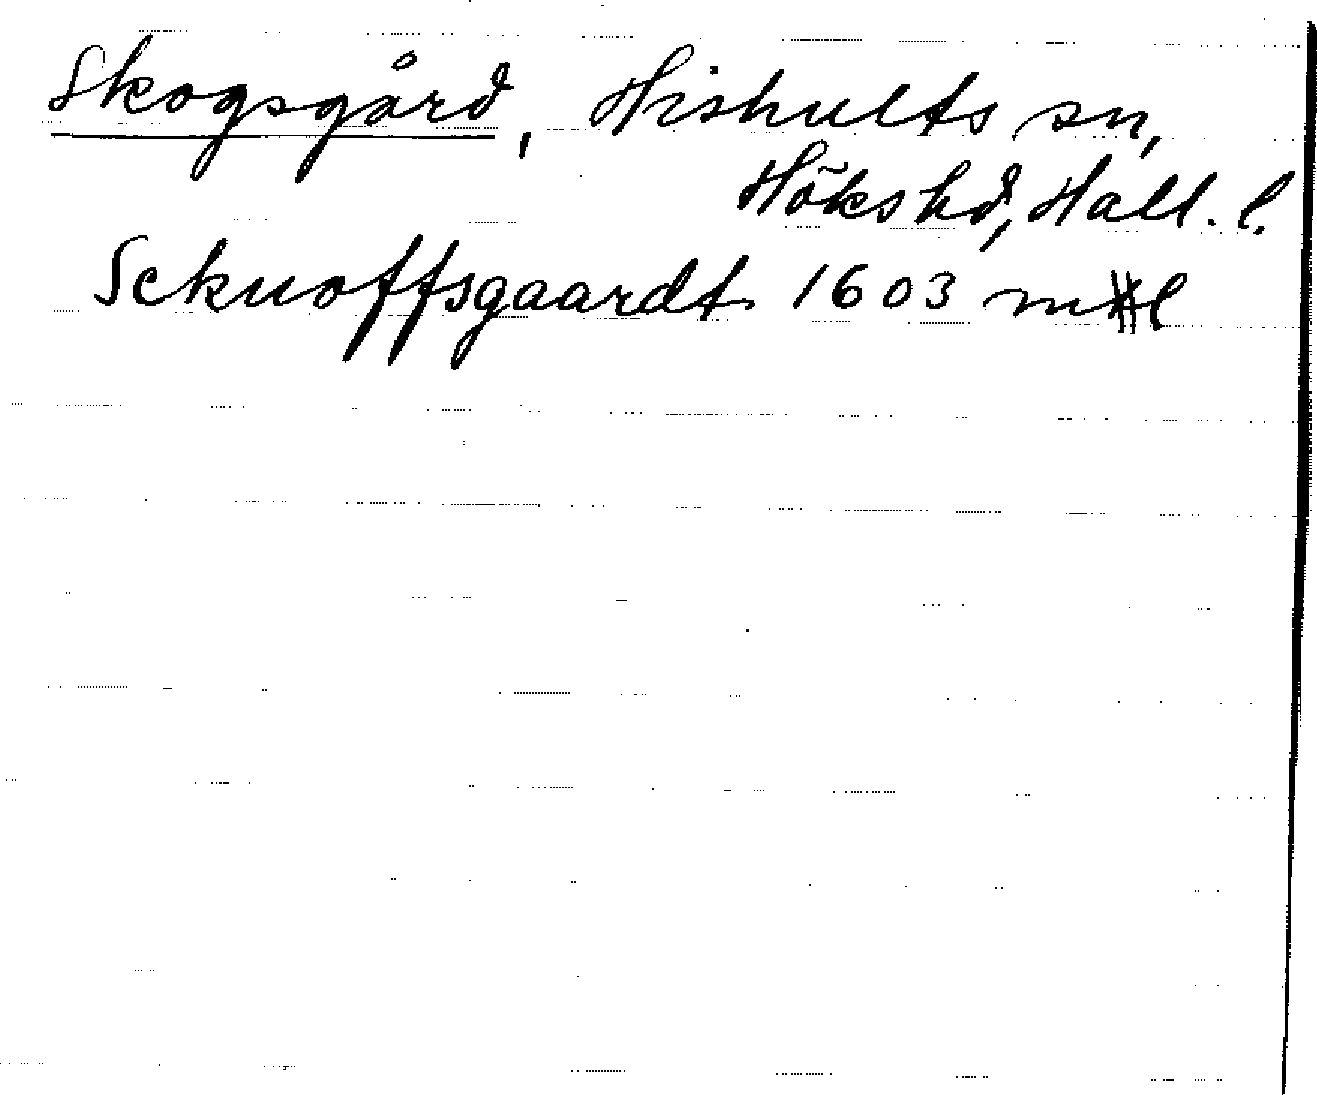 Skogsgård, Hishults sn,
Höks hd, Hall. l.
Sckuoffsgaardt 1603